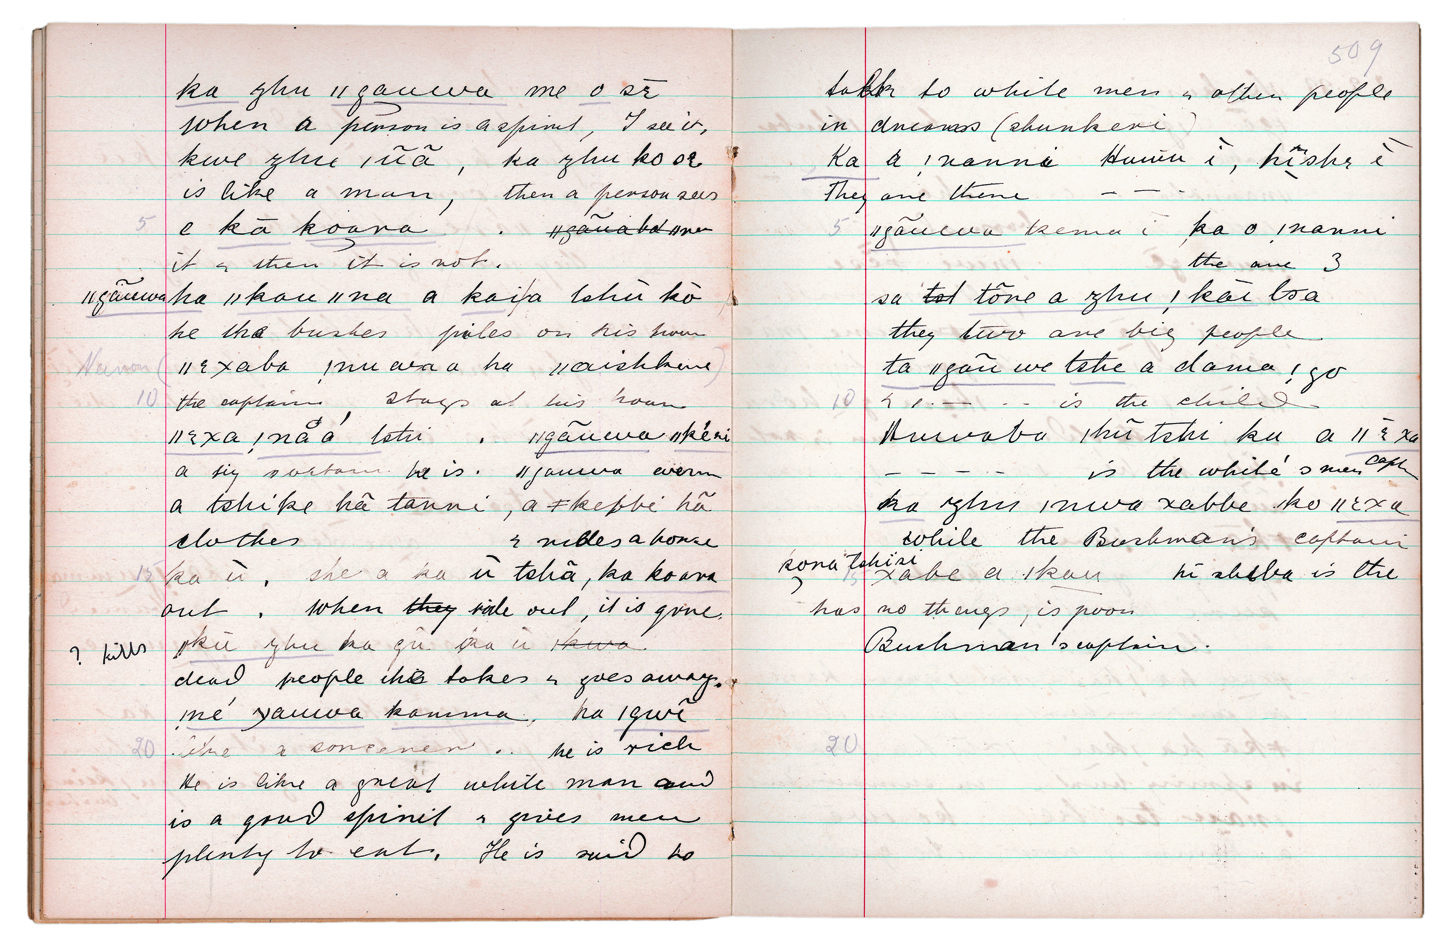 ka zhu ǁgauwa me o sē
When a person is a spirit, I see it,
kwe zhu ı̄ñã, ka zhu ko se
is like a man, then a person sees
5 e kā koara . ǁgãuaba ǁna
it & then it is not.
ǁgãuwa ha ǁkau ǁna a kaiǀa tshū kō
he the bushes piles on his house
(ǁɛxaba ǀnu a ha ǁaishkwe)
10 the captain, stays at his house
ǁɛxa ǀnãá tshi . ǁgãuwa ǁkéri
a big captain he is. ǁgauwa
a tshike hã tanni, a ǂkebbi hã
clothes & rides a horse
15 ka ū, she a ka ū tshā, ka koara
out. When they ride out, it is gone.
? kills ǀkū zhu ka gū ka ū
dead people he takes & goes away.
ǀné xauwa kamma, ha ǀgwī
20 like a sorcerer .. he is rich
He is like a great white man and
is a good spirit & gives men
plenty to eat. He is said to
509
talk to white men & other people
in dreams (shunkeri)
Ka a ǀnanni Hauiu ī, hīshɛ ī
They are there — — .
5 ǁgãuwa kema ī ka o ǀnanni
the are 3
sa tst tōne a zhu ǃkāi tsa
they two are big people
ta ǁgãuwe tshe a dama ǃgo
10 & ı . — - - is the child
Huwaba ǀhū tshi ku a ǁɛxa
— — — — is the white's men capt
ka zhu ǀnwa xabbe ko ǁɛxa
while the Bushman's captain
kora tshisi
15 xabe a ǀkau hi sheba is the
has no things, is poor
Bushman's captain.
20